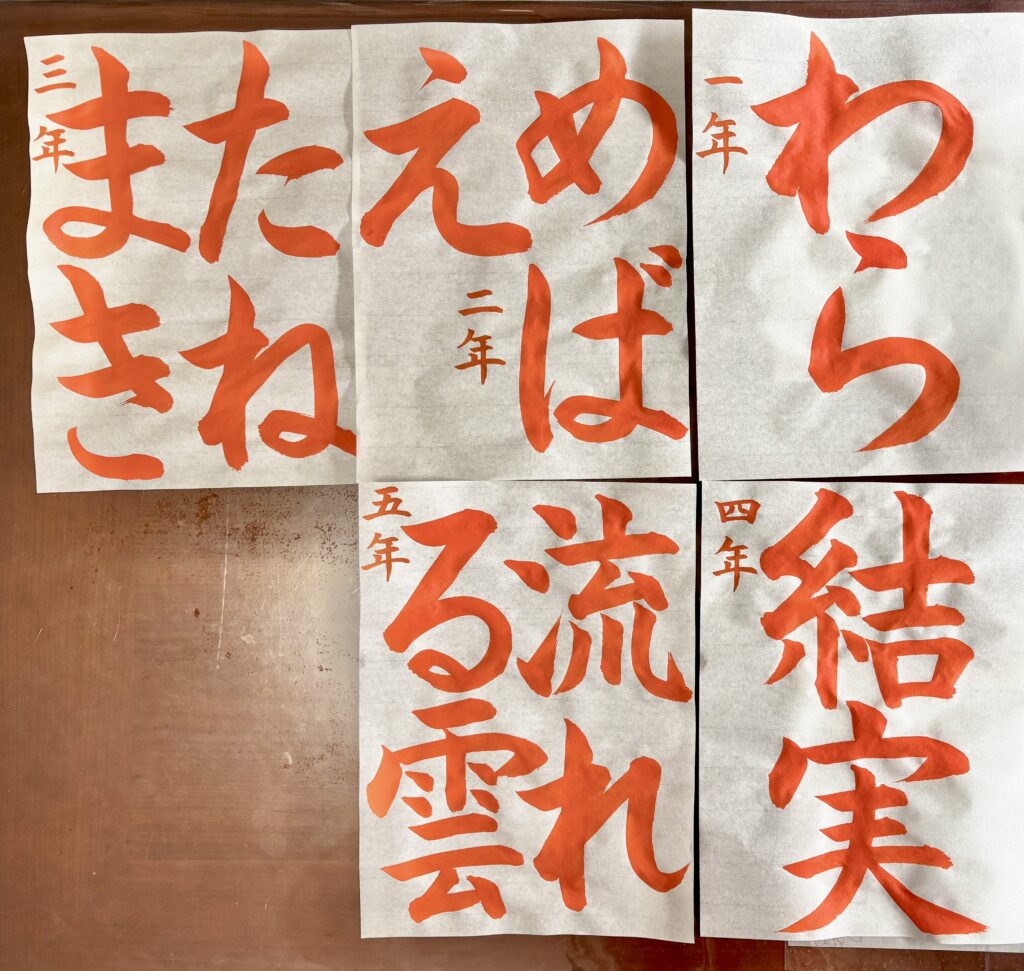 わら
一年
めば
え
二年
たね
まき
三年
結実
四年
流れ
る雲
五年